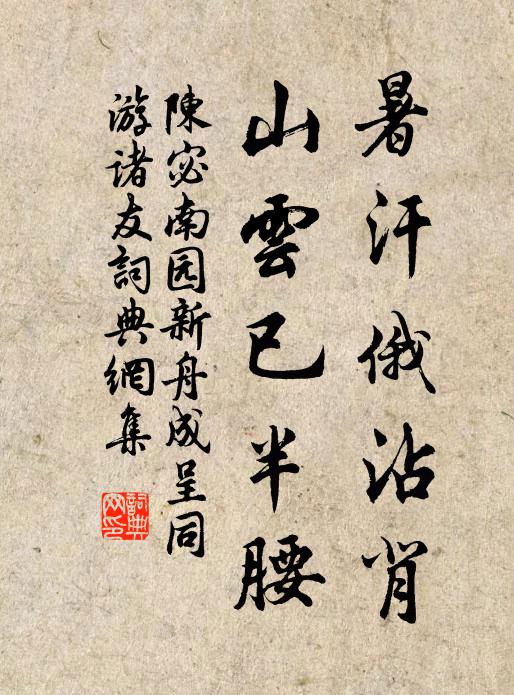 暑汗俄沾背
山雲已半腰
陳宓南园新舟成呈同
游诸友詞典網集
詞典
网印